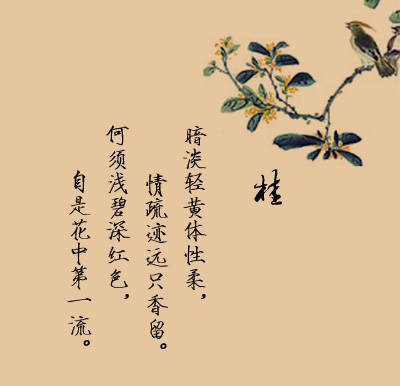 桂
暗淡轻黄体性柔，
情疏迹远只香留。
何须浅碧深红色，
自是花中第一流。